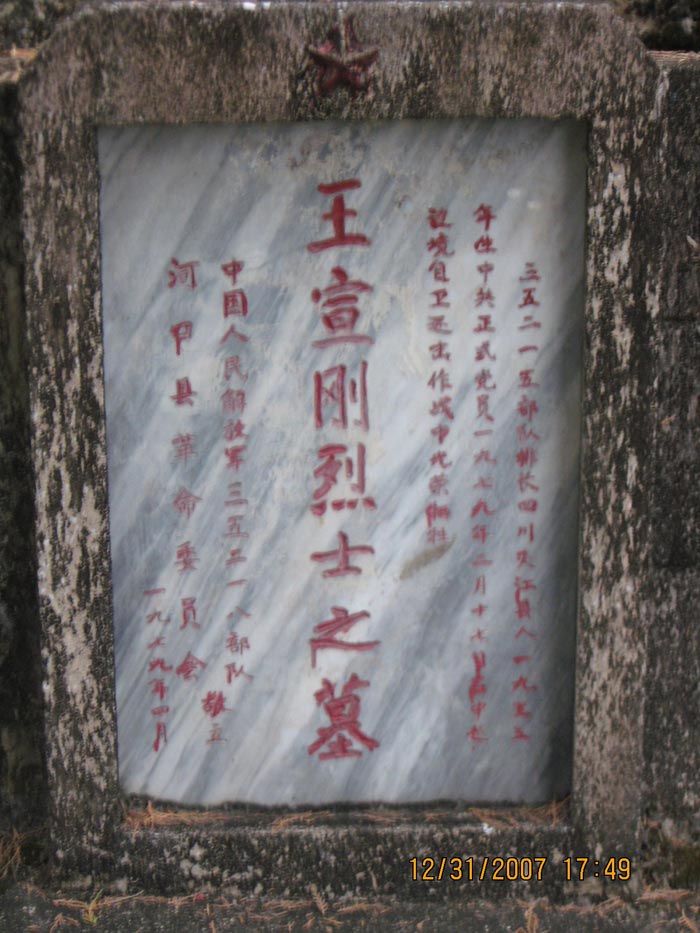 三五二一五部队排长四川夹江县人一九五五
年生中共正式党员一九七九年二月十七日在中越
边境自卫还击作战中光荣牺牲
王宣刚烈士之墓
中国人民解放军三五二一八部队
河口县革命委员会
敬立
一九七九年四月
12/31/2007 17:49